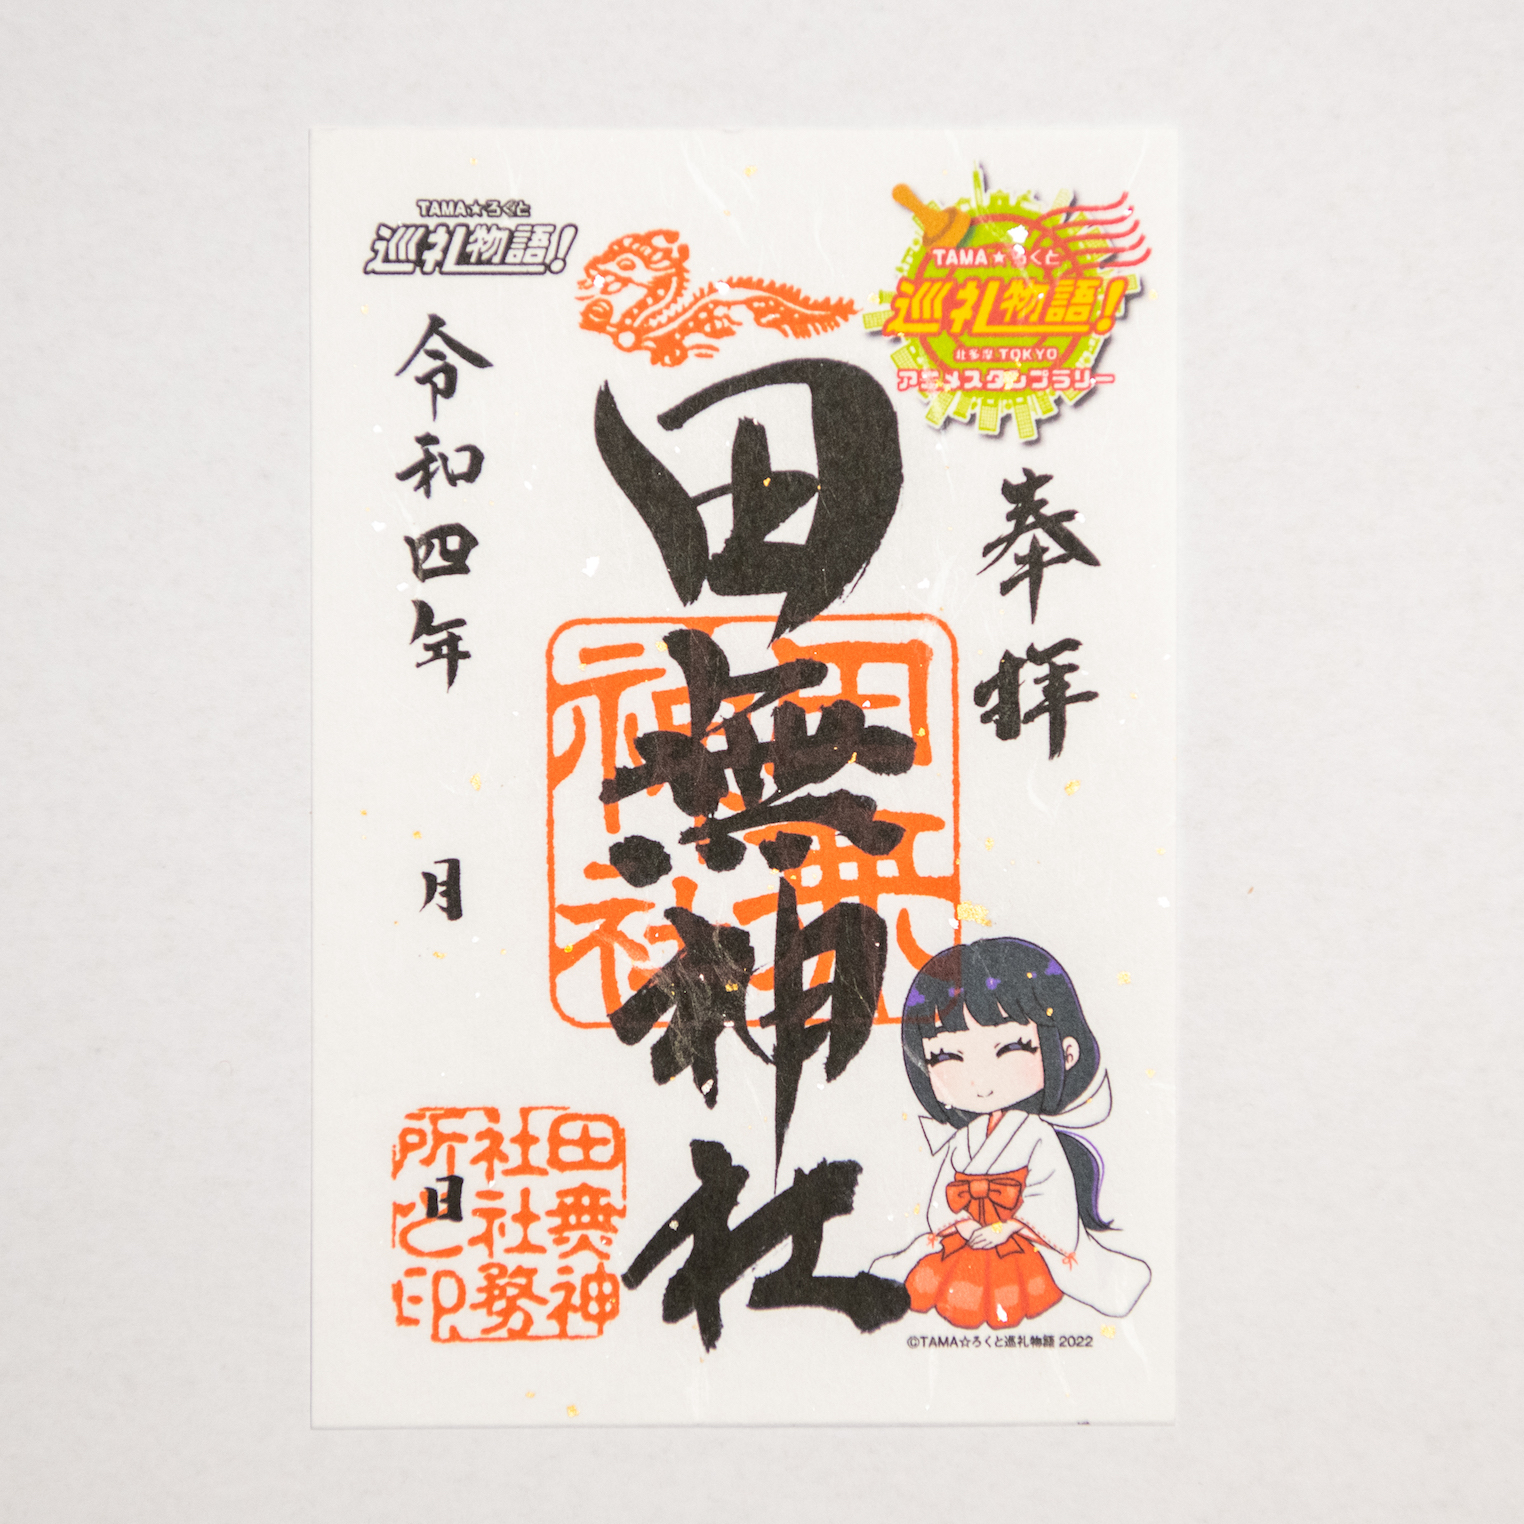 TAMA★ろくと
巡礼物語!
TAMA★ろくと
巡礼物語!
北多摩TOKYO
アニメスタンプラリー
奉拝
田無神社
田無神社
令和四年 月 日
田無神社社務所之印
©TAMA☆ろくと巡礼物語 2022